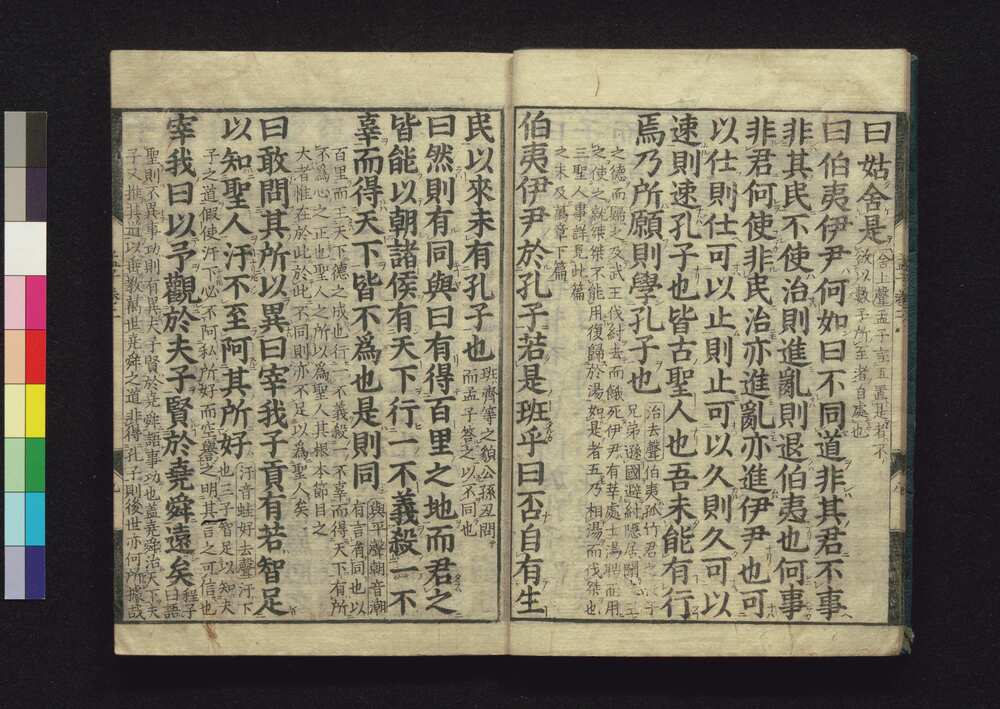 曰姑舍是舍上聲孟子言且置是者不
欲以數子所至者自處也
曰伯夷伊尹何如曰不同道非其君不事
非其民不使治則進亂則退伯夷也何事
非君何使非民治亦進亂亦進伊尹也可
以仕則仕可以止則止可以久則久可以
速則速孔子也皆古聖人也吾未能有行
焉乃所願則學孔子也治去聲伯夷孤竹君之子
兄弟遜國避紂隱居聞文王
之德而歸之及武王伐紂去而餓死伊尹有莘處士湯聘而用
之使之就桀桀不能用復歸於湯如是者五乃相湯而伐桀也
三聖人事詳見此篇
之末及萬章下篇
伯夷伊尹於孔子若是班乎曰否自有生
民以來未有孔子也班齊等之貌公孫丑問
而孟子答之以不同也
曰然則有同與曰有得百里之地而君之
皆能以朝諸侯有天下行一不義殺一不
辜而得天下皆不爲也是則同與平聲朝音潮
有言有同也以
百里而王天下德之盛也行一不義殺一不辜而得天下有所
不爲心之正也聖人之所以爲聖人其根本節目之
大者惟在於此於此不同則亦不足以爲聖人矣
曰敢問其所以異曰宰我子貢有若智足
以知聖人汙不至阿其所好汙音蛙好去聲汙下
也三子智足以知夫
子之道假使汙下必不阿私所好而空譽之明其言之可信也
宰我曰以予觀於夫子賢於堯舜遠矣程子
曰語
聖則不異事功則有異夫子賢於堯舜語事功也蓋堯舜治天下夫
子又推其道以垂敎萬世堯舜之道非得孔子則後世亦何所據哉